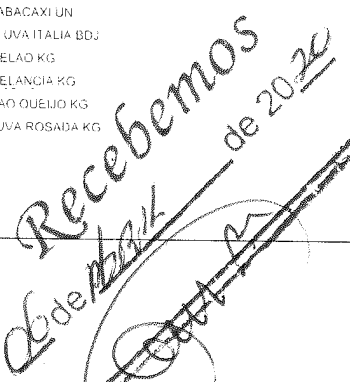 ABACAXI UN
UVA ITALIA BDJ
ELAO KG
ELANCIA KG
AO QUEIJO KG
UVA ROSADA KG
Recebemos
06 de Abril de 2020